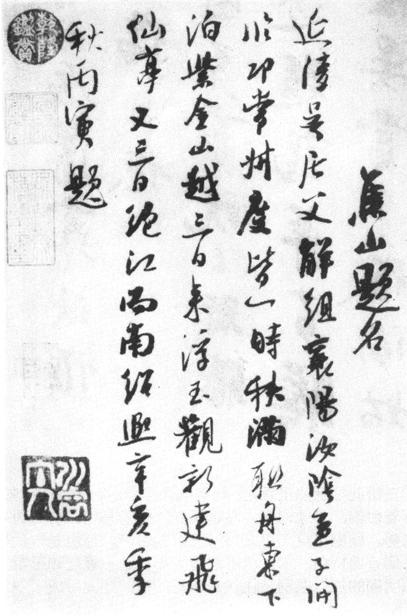 焦山題名
延陵吳居父解組襄陽汝陰孟子開
印常州度皆一時秩滿聯舟東下
泊紫金山越三日來浮玉觀新建飛
仙亭又三日絕江而南紹熙辛亥季
秋丙寅題
乾隆鑒賞